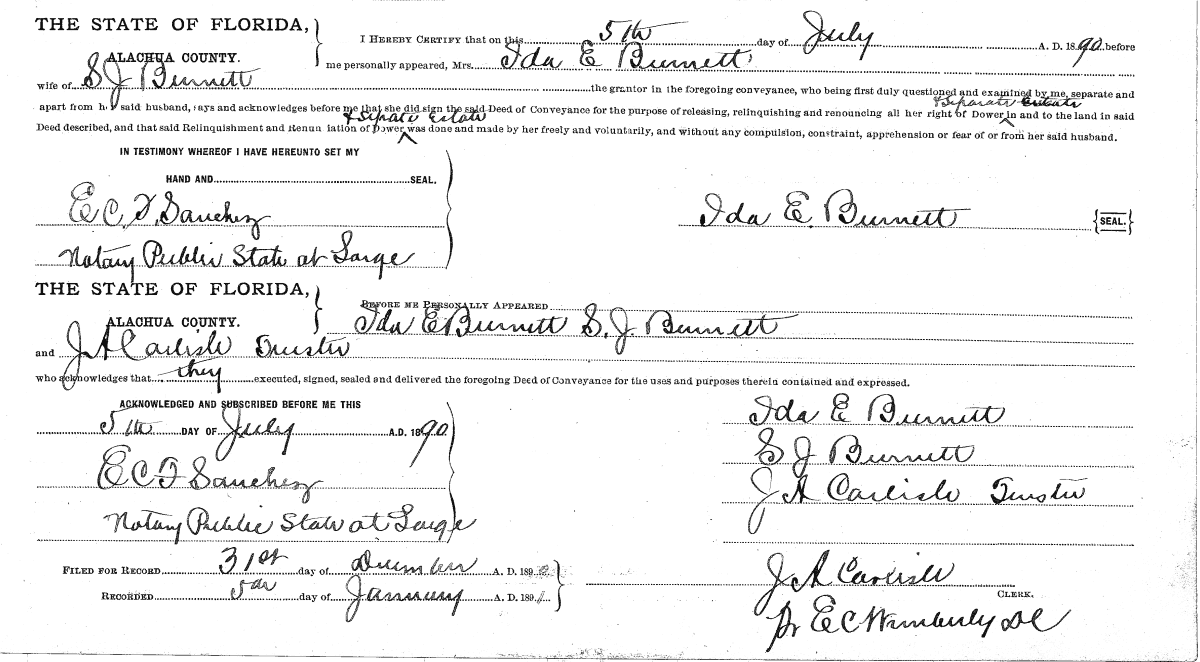 THE STATE OF FLORIDA,
ALACHUA COUNTY.
I HEREBY CERTIFY that on this 5th day of July A. D. 1890 before
me personally appeared, Mrs. Ida E Burnett
wife of S J Burnett the grantor in the foregoing conveyance, who being first duly questioned and examined by me, separate and
& Separate Estate
apart from h said husband, says and acknowledges before me that she did sign the said Deed of Conveyance for the purpose of releasing, relinquishing and renouncing all her right of Dower in and to the land in said
& Separate Estate
Deed described, and that said Relinquishment and Renun iation of Dower was done and made by her freely and voluntarily, and without any compulsion, constraint, apprehension or fear of or from her said husband.
IN TESTIMONY WHEREOF I HAVE HEREUNTO SET MY
HAND AND SEAL.
E. C. F. Sanchez
Notary Public State at Large
Ida E. Burnett {SEAL.}
THE STATE OF FLORIDA,
ALACHUA COUNTY.
BEFORE ME PERSONALLY APPEARED
Ida E Burnett S. J. Burnett
and J A Carlisle Trustee
who acknowledges that they executed, signed, sealed and delivered the foregoing Deed of Conveyance for the uses and purposes therein contained and expressed.
ACKNOWLEDGED AND SUBSCRIBED BEFORE ME THIS
5th DAY OF July A.D. 1890
E C F Sanchez
Notary Public State at Large
Ida E Burnett
S J Burnett
J A Carlisle Trustee
FILED FOR RECORD 31st day of December A. D. 189
RECORDED 5th day of January A. D. 189
J A Carlisle
CLERK.
Pr E C Wimberly DC